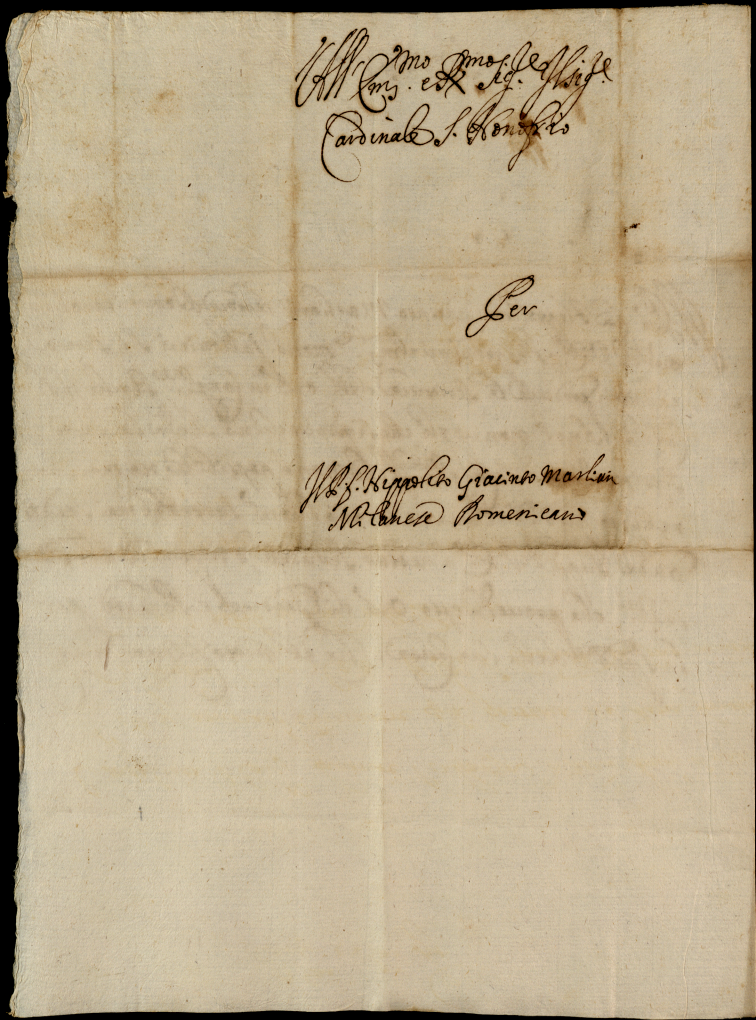 All' Em.mo e R.mo Sig.re Il Sig.re
Cardinale S. Honofrio
Per
Il P. f. Hippolito Giacinto Marliani
Milanese Domenicano